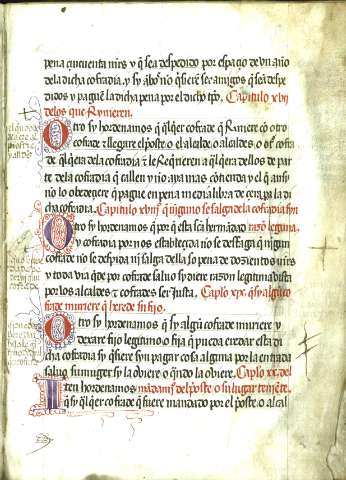 pena çincuenta mrs y q̃ sea despedido por espaçio de vn año
dela dicha cofradia, y sy abono q̃sierẽ ser amigos q̃ sea despe
didos y paguẽ la dicha pena por el dicho tpõ. Capitulo xvij
delos que Rynieren.
Otro sy hordenamos q̃ q̃lq̃er cofrade q̃ Riniere cõ otro
cofrade τ llegare el p̃oste o el alcalde o alcaldes, o otº cofra
de q̃lq̃era dela cofradia τ le Req̃rieren a q̃lq̃era dellos de par
te dela cofradia q̃ callen y nõ aya mas contenda y el q̃ ansy
no lo obedeçiere q̃ pague en pena media libra de çera pa la di
cha cofradia. Capitulo xviijº q̃ ninguno se salga dela cofradia syn
Otro sy hordenamos q̃ por q̃ esta sea hermãdad razõ leguna
y cofradia por nos establecida no se desfaga q̃ nigun
cofrade no se despida ni salga della so pena de dozientos mrs
y toda via q̃de por cofrade saluo sy diere razon legitima vista
por los alcaldes τ cofrades ser Justa. Caplo xix. q̃ sy algũ co
frade muriere q̃ herede su fijo.
Otro sy hordenamos q̃ sy algũ cofrade muriere y
dexare fijo legitimo o fija q̃ pueda eredar esta di
cha cofradia sy q̃siere syn pagar cosa alguna por la entrada
saluo su muger sy la obiere o q̃ndo la obiere. Caplo xx. del
Iten hordenamos mãdamiº del p̃oste o su lugar teniẽte.
q̃ sy q̃lq̃er cofrade q̃ fuere mandado por el p̃oste o alcal